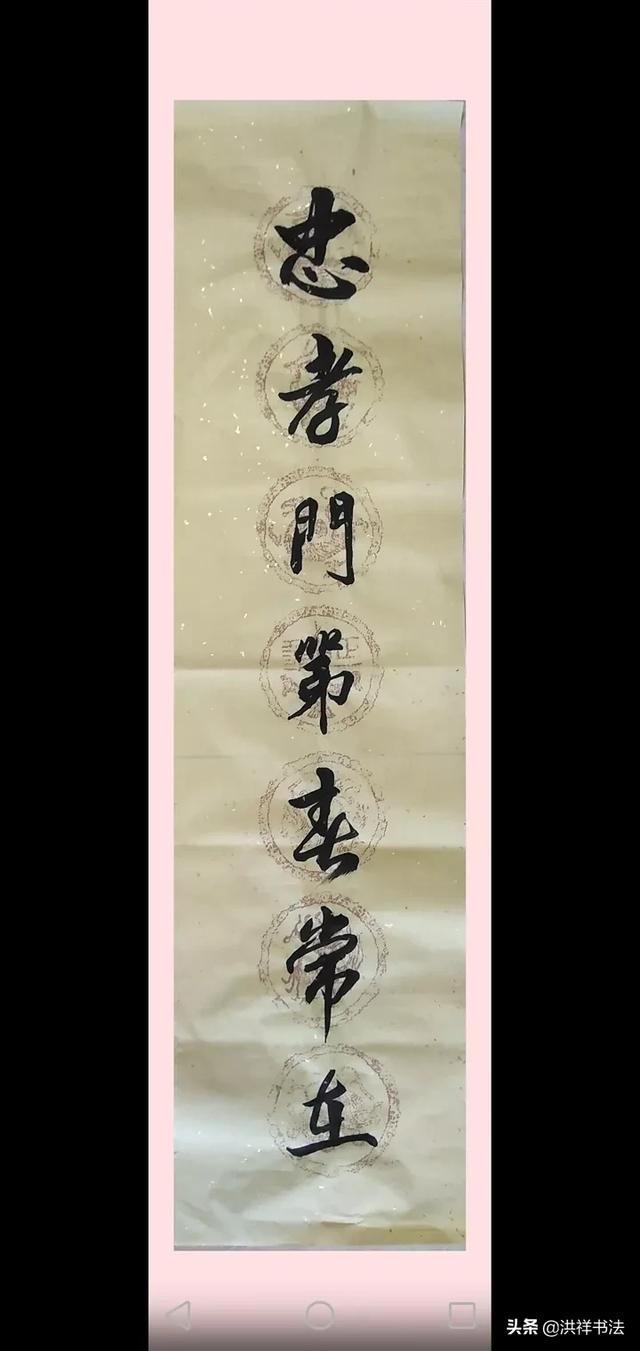 忠孝門第春常在
头条 @洪祥书法